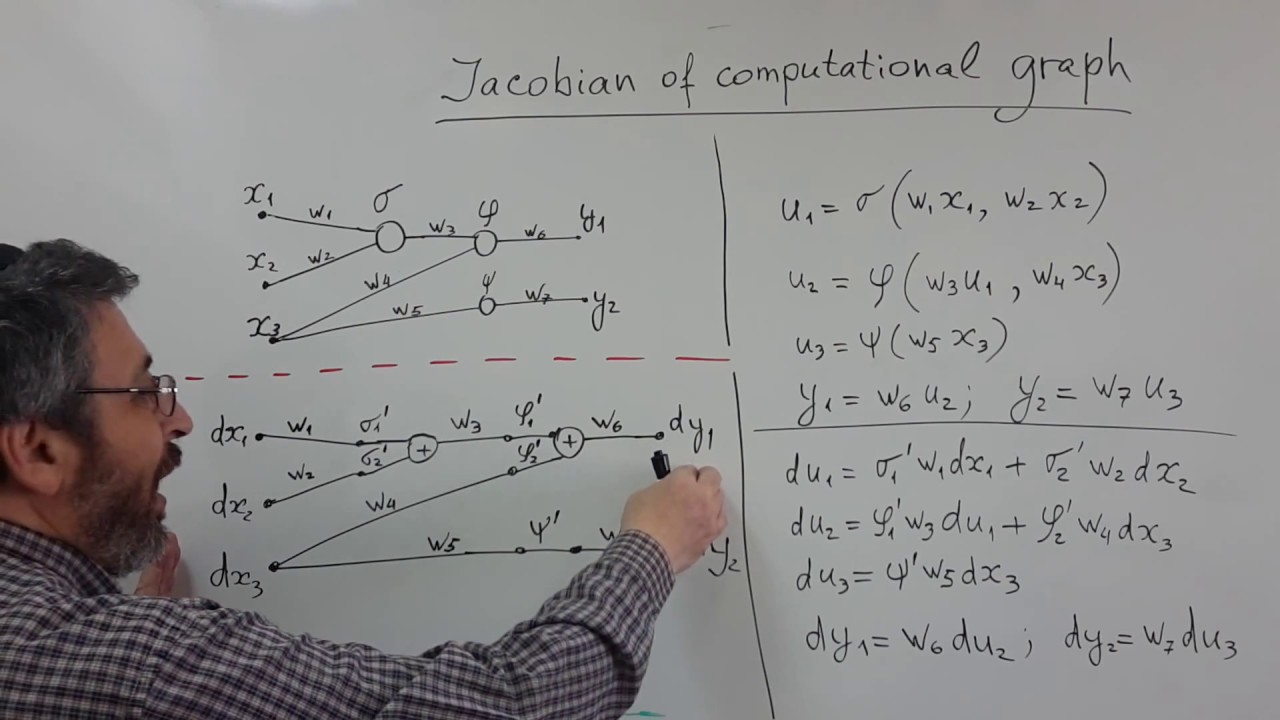 Jacobian of computational graph
x₁ w₁ σ w₃ φ w₆ y₁
x₂ w₂ w₄ ψ w₇ y₂
x₃ w₅
dx₁ w₁ σ₁' + w₃ φ₁' + w₆ dy₁
dx₂ w₂ σ₂' w₄ φ₂'
dx₃ w₅ ψ' y₂
u₁ = σ(w₁x₁, w₂x₂)
u₂ = φ(w₃u₁, w₄x₃)
u₃ = ψ(w₅x₃)
y₁ = w₆u₂; y₂ = w₇u₃
du₁ = σ₁'w₁dx₁ + σ₂'w₂dx₂
du₂ = φ₁'w₃du₁ + φ₂'w₄dx₃
du₃ = ψ'w₅dx₃
dy₁ = w₆du₂; dy₂ = w₇du₃